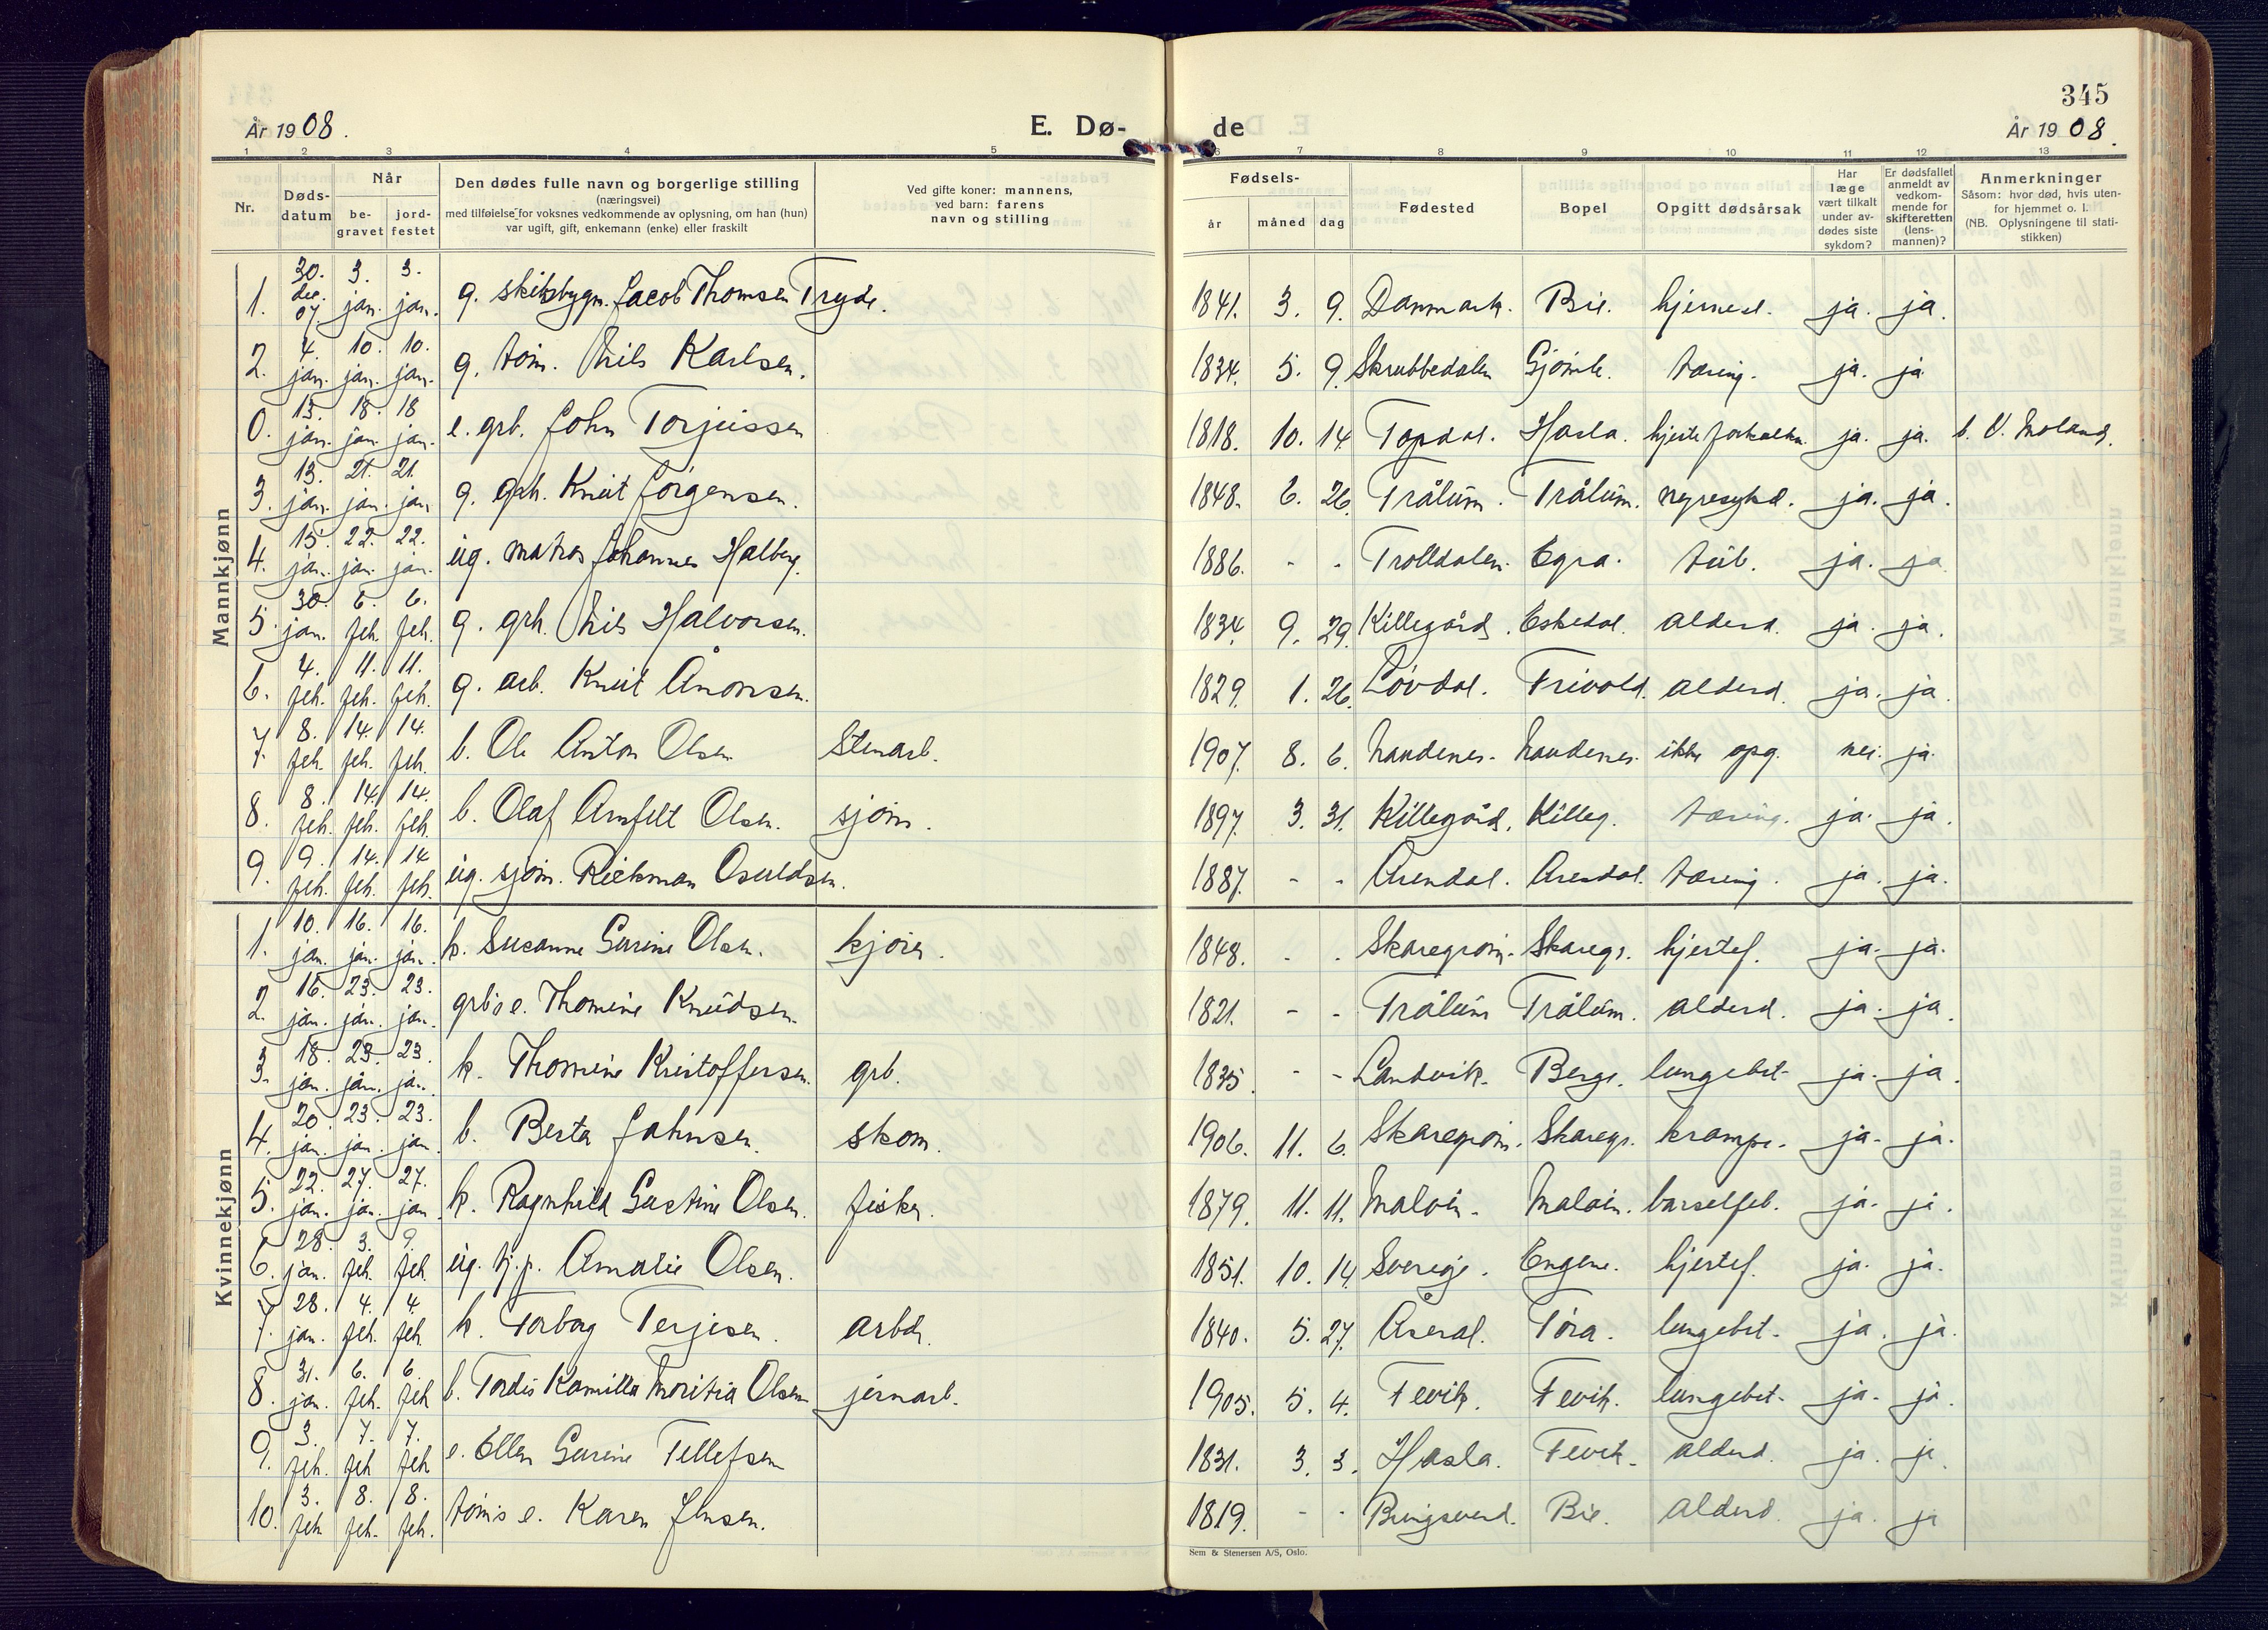 345
År 1908.
E. Dø-
de
År 1908.
1 2 3 4 5 6 7 8 9 10 11 12 13
Nr.
Døds-
datum
Når
be-
gravet
jord-
festet
Den dødes fulle navn og borgerlige stilling
(næringsvei)
med tilføielse for voksnes vedkommende av oplysning, om han (hun)
var ugift, gift, enkemann (enke) eller fraskilt
Ved gifte koner: mannens,
ved barn: farens
navn og stilling
Fødsels-
år måned dag
Fødested
Bopel
Opgitt dødsårsak
Har
læge
vært tilkalt
under av-
dødes siste
sykdom?
Er dødsfallet
anmeldt av
vedkom-
mende for
skifteretten
(lens-
mannen)?
Anmerkninger
Såsom: hvor død, hvis uten-
for hjemmet o. l.
(NB. Oplysningene til stati-
stikken)
Mannkjønn
1. 30. dec. 07 3. jan. 3. jan. g. skibsbygm. Jacob Thomsen Tryde. 1841. 3. 9. Danmark. Bie. hjernesl. ja. ja.
2. 4. jan. 10. jan. 10. jan. g. tøm. Nils Karlsen. 1834. 5. 9. Skrubbedalen Gjømle. tæring. ja. ja
0. 13. jan. 18. jan. 18 jan. e. grb. John Torjussen 1818. 10. 14 Topdal. Hasla. hjerteforkalkn. ja. ja. b. V. Moland.
3. 13. jan. 21. jan. 21. jan. g. grb. Knut Jørgensen. 1848. 6. 26. Trålum. Trålum. nyresykd. ja. ja.
4. 15. jan. 22. jan. 22. jan. ug. matros Johannes Halberg. 1886. - - Trolldalen. Egra. tub. ja. ja
5. 30. jan. 6. feb. 6. feb. g. grb. Nils Halvorsen. 1834 9. 29. Killegård. Eskedal. alderd. ja. ja.
6. 4. feb. 11. feb. 11. feb. g. arb. Knut Ånonsen. 1829. 1. 26. Løvdal. Frivold. alderd. ja. ja.
7. 8. feb. 14. feb. 14. feb. b. Ole Anton Olsen Stenarb. 1907. 8. 6. Naudenes. Naudenes. ikke opg. nei. ja.
8. 8. feb. 14. feb. 14. feb. b. Olaf Arnfelt Olsen. sjøm. 1897. 3. 31. Killegård. Killeg. tæring. ja. ja.
9. 9. feb. 14. feb. 14 feb. ug. sjøm. Rickman Osuldsen. 1887. - - Arendal. Arendal. tæring. ja. ja.
Kvinnekjønn
1. 10. jan. 16. jan. 16. jan. k. Susanne Gurine Olsen. kjører. 1848. - - Skaregrøm. Skaregr. hjertef. ja. ja.
2. 16. jan. 23. jan. 23. jan. grb's e. Thomine Knudsen. 1821. - - Trålum Trålum. alderd. ja. ja.
3. 18. jan. 23. jan. 23. jan. k. Thomine Kristoffersen. grb. 1835. - - Landvik. Berge. lungebet. ja. ja.
4. 20. jan. 23. jan. 23. jan b. Berta Johnsen. skom. 1906. 11. 6. Skaregrøm. Skaregr. krampe. ja. ja.
5. 22. jan. 27. jan. 27. jan k. Ragnhild Gustine Olsen. fisker. 1879. 11. 11. Maløin. Maløin. barselfeb. ja. ja.
6. 28. jan. 3. feb. 9. feb. ug. tj.p. Amalie Olsen. 1851. 10. 14. Sverige. Engene. hjertef. ja. ja.
7. 28. jan. 4. feb. 4. feb k. Torborg Terjesen. arbdr. 1840. 5. 27. Åseral. Tøra. lungebet. ja. ja.
8. 31. jan. 6. feb. 6. feb b. Tordis Kamilla Moritia Olsen jernarb. 1905. 5. 4. Fevik. Fevik. lungebet. ja. ja.
9. 3. feb. 7. feb 7. feb e. Ellen Gurine Tellefsen 1831. 3. 3. Hasla. Fevik. alderd. ja. ja.
10. 3. feb 8. feb. 8. feb. tøm's e. Karen Jensen. 1819. - - Bringsverd. Bie. alderd. ja. ja
Sem & Stenersen A/S, Oslo.